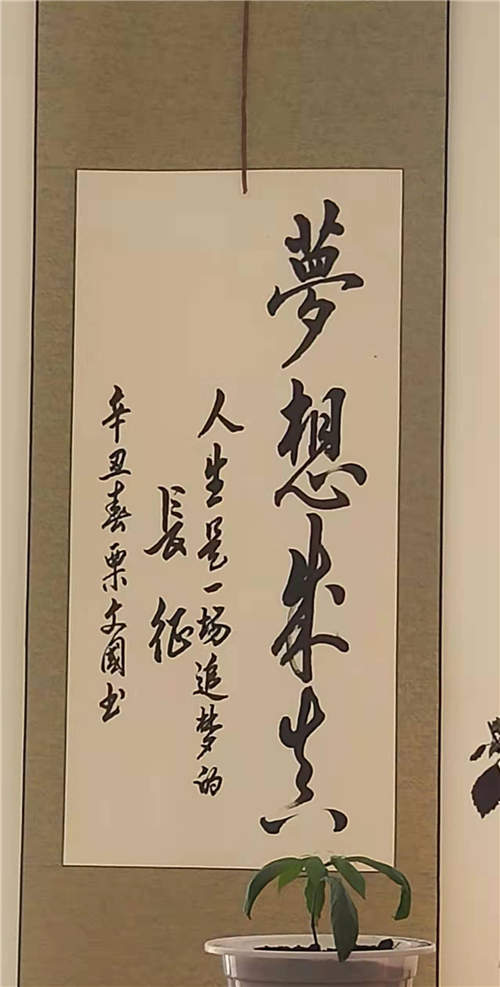 夢想成真
人生是一场追梦的
長征
辛丑春栗文國书